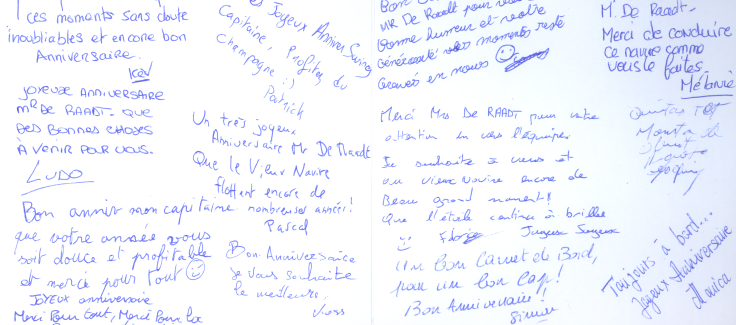 ces moments sans doute
inoubliables et encore bon
Anniversaire.
Kev
JOYEUSE ANNIVERSAIRE
MR DE RAADT. QUE
DES BONNES CHOSES
À VENIR POUR VOUS.
LUDO
Bon anniv mon capitaine
que votre année vous
soit douce et profitable
et merci pour tout
JOYEUX anniversaire
Merci Pour tout, Merci Pour
Joyeux Anniver
Capitaine, Profitez du
Champagne :)
Patrick
Un très joyeux
Anniversaire Mr De Raadt
Que le Vieux Navire
flottent encore de
nombreuses années!
Pascal
Bon Anniversaire
je vous souhaite
le meilleurs.
Bon
Mr De Raadt pour
bonne humeur et votre
Générosité moments resté
Gravés en nous
M. De Raadt-
Merci de conduire
ce navire comme
vous le faites.
Mélanie
Merci Mrs De RAADT pour votre
attention en vers l'équipe
Je souhaite a vous et
au vieux Navire encore de
Beau grand moment!
Que l'étoile continu à briller
Un bon Carnet de Bord,
pour un bon Cap!
Bon Anniversaire!
Toujours à bord...
Joyeux Anniversaire